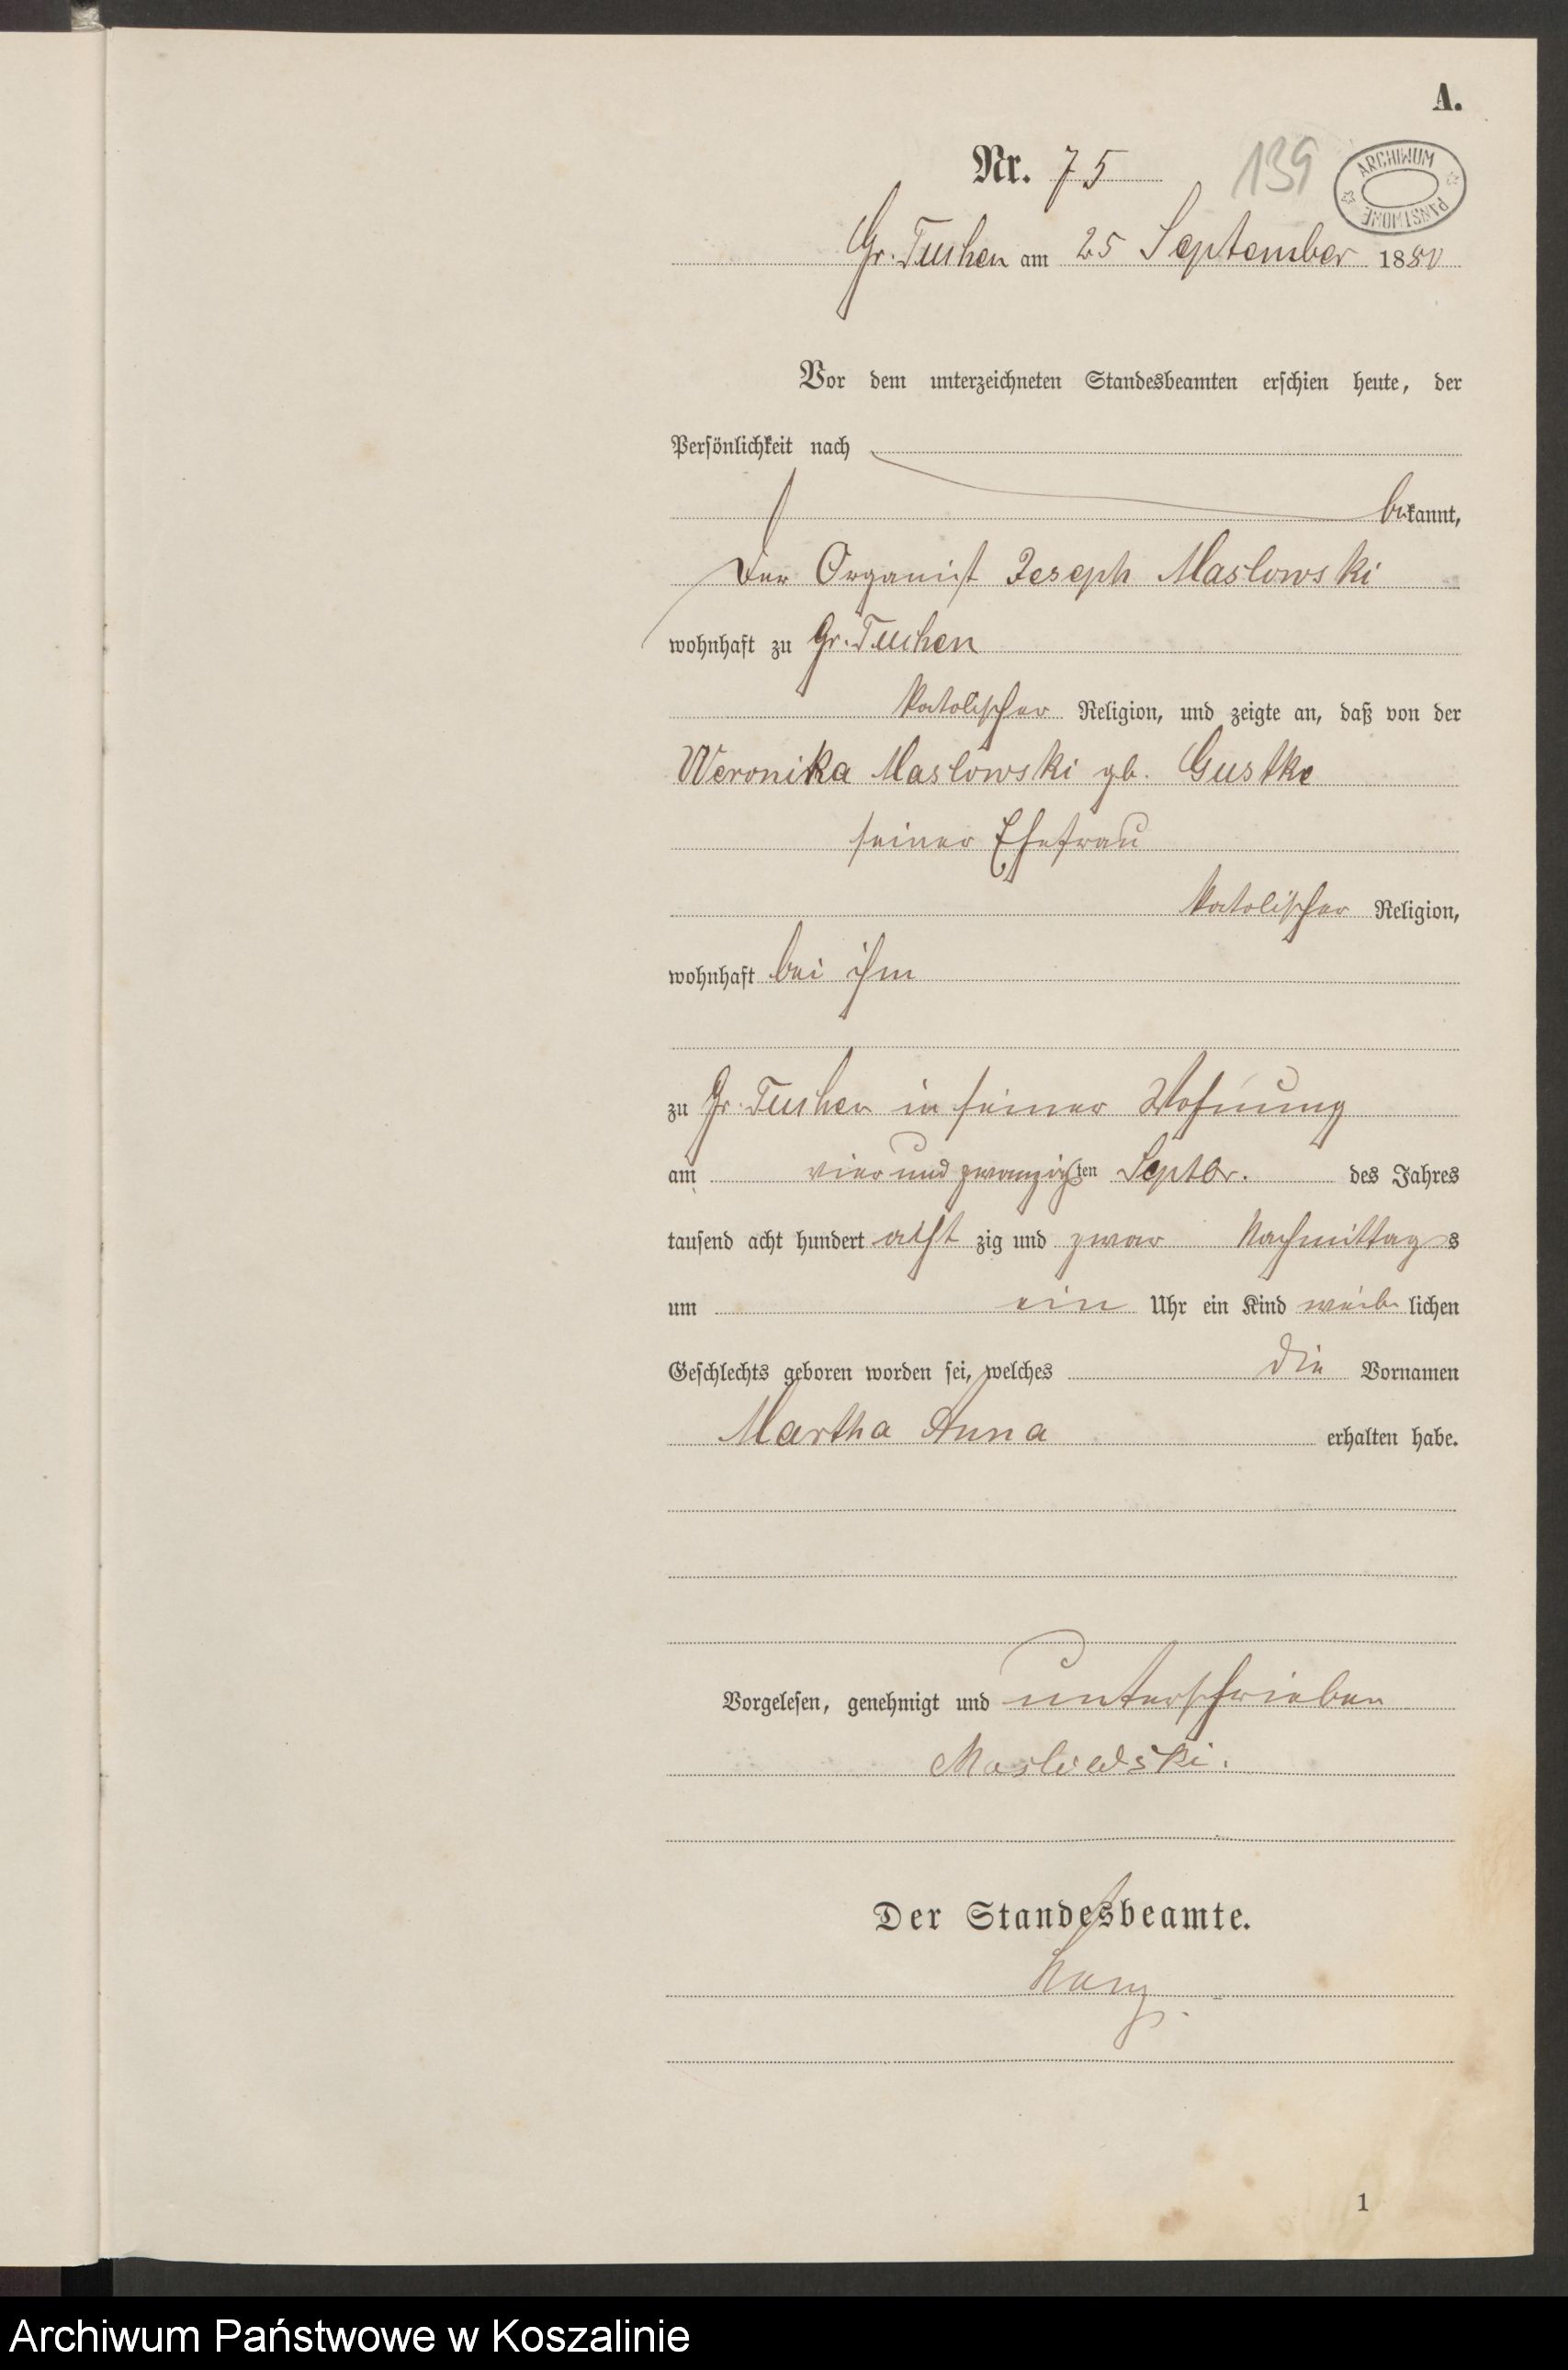 A.
Nr. 75
139
ARCHIWUM PAŃSTWOWE
Gr. Tuchen am 25 September 1880
Vor dem unterzeichneten Standesbeamten erschien heute, der
Persönlichkeit nach
bekannt,
der Organist Joseph Maslowski
wohnhaft zu Gr. Tuchen
katolischer Religion, und zeigte an, daß von der
Weronika Maslowski gb. Gustke
seiner Ehefrau
katolischer Religion,
wohnhaft bei ihm
zu Gr. Tuchen in seiner Wohnung
am vier und zwanzigsten Septbr. des Jahres
tausend acht hundert acht zig und zwar Nachmittags
um ein Uhr ein Kind weiblichen
Geschlechts geboren worden sei, welches die Vornamen
Martha Anna erhalten habe.
Vorgelesen, genehmigt und unterschrieben
Maslowski.
Der Standesbeamte.
1
Archiwum Państwowe w Koszalinie